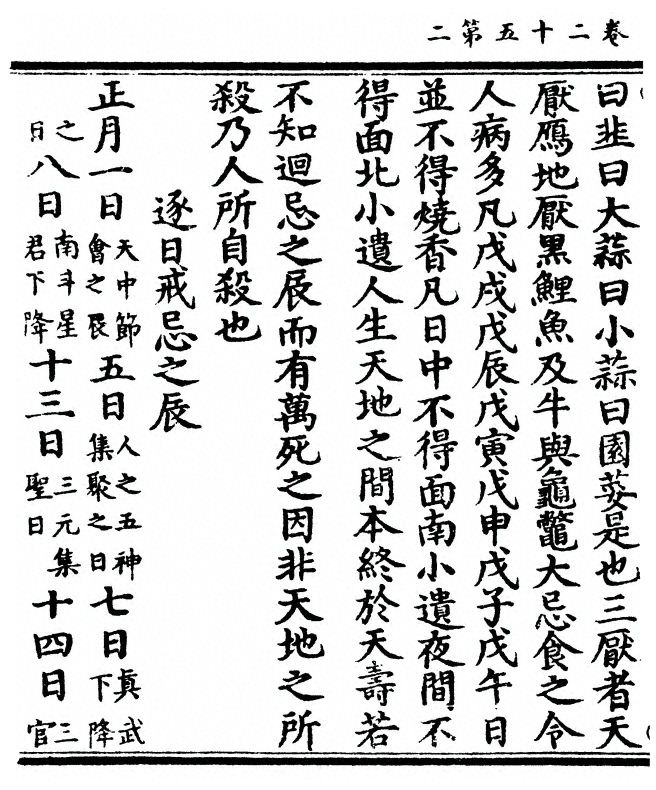 卷二十五第二
曰韮曰大蒜曰小蒜曰園荽是也三厭者天
厭鴈地厭黑鯉魚及牛與龜鼈大忌食之令
人病多凡戊戌戊辰戊寅戊申戊子戊午日
並不得燒香凡日中不得面南小遺夜間不
得面北小遺人生天地之間本終於天壽若
不知迴忌之辰而有萬死之因非天地之所
殺乃人所自殺也
逐日戒忌之辰
正月一日天中節會之辰五日人之五神集聚之日七日眞武下降
之日八日南斗星君下降十三日三元集聖日十四日三官